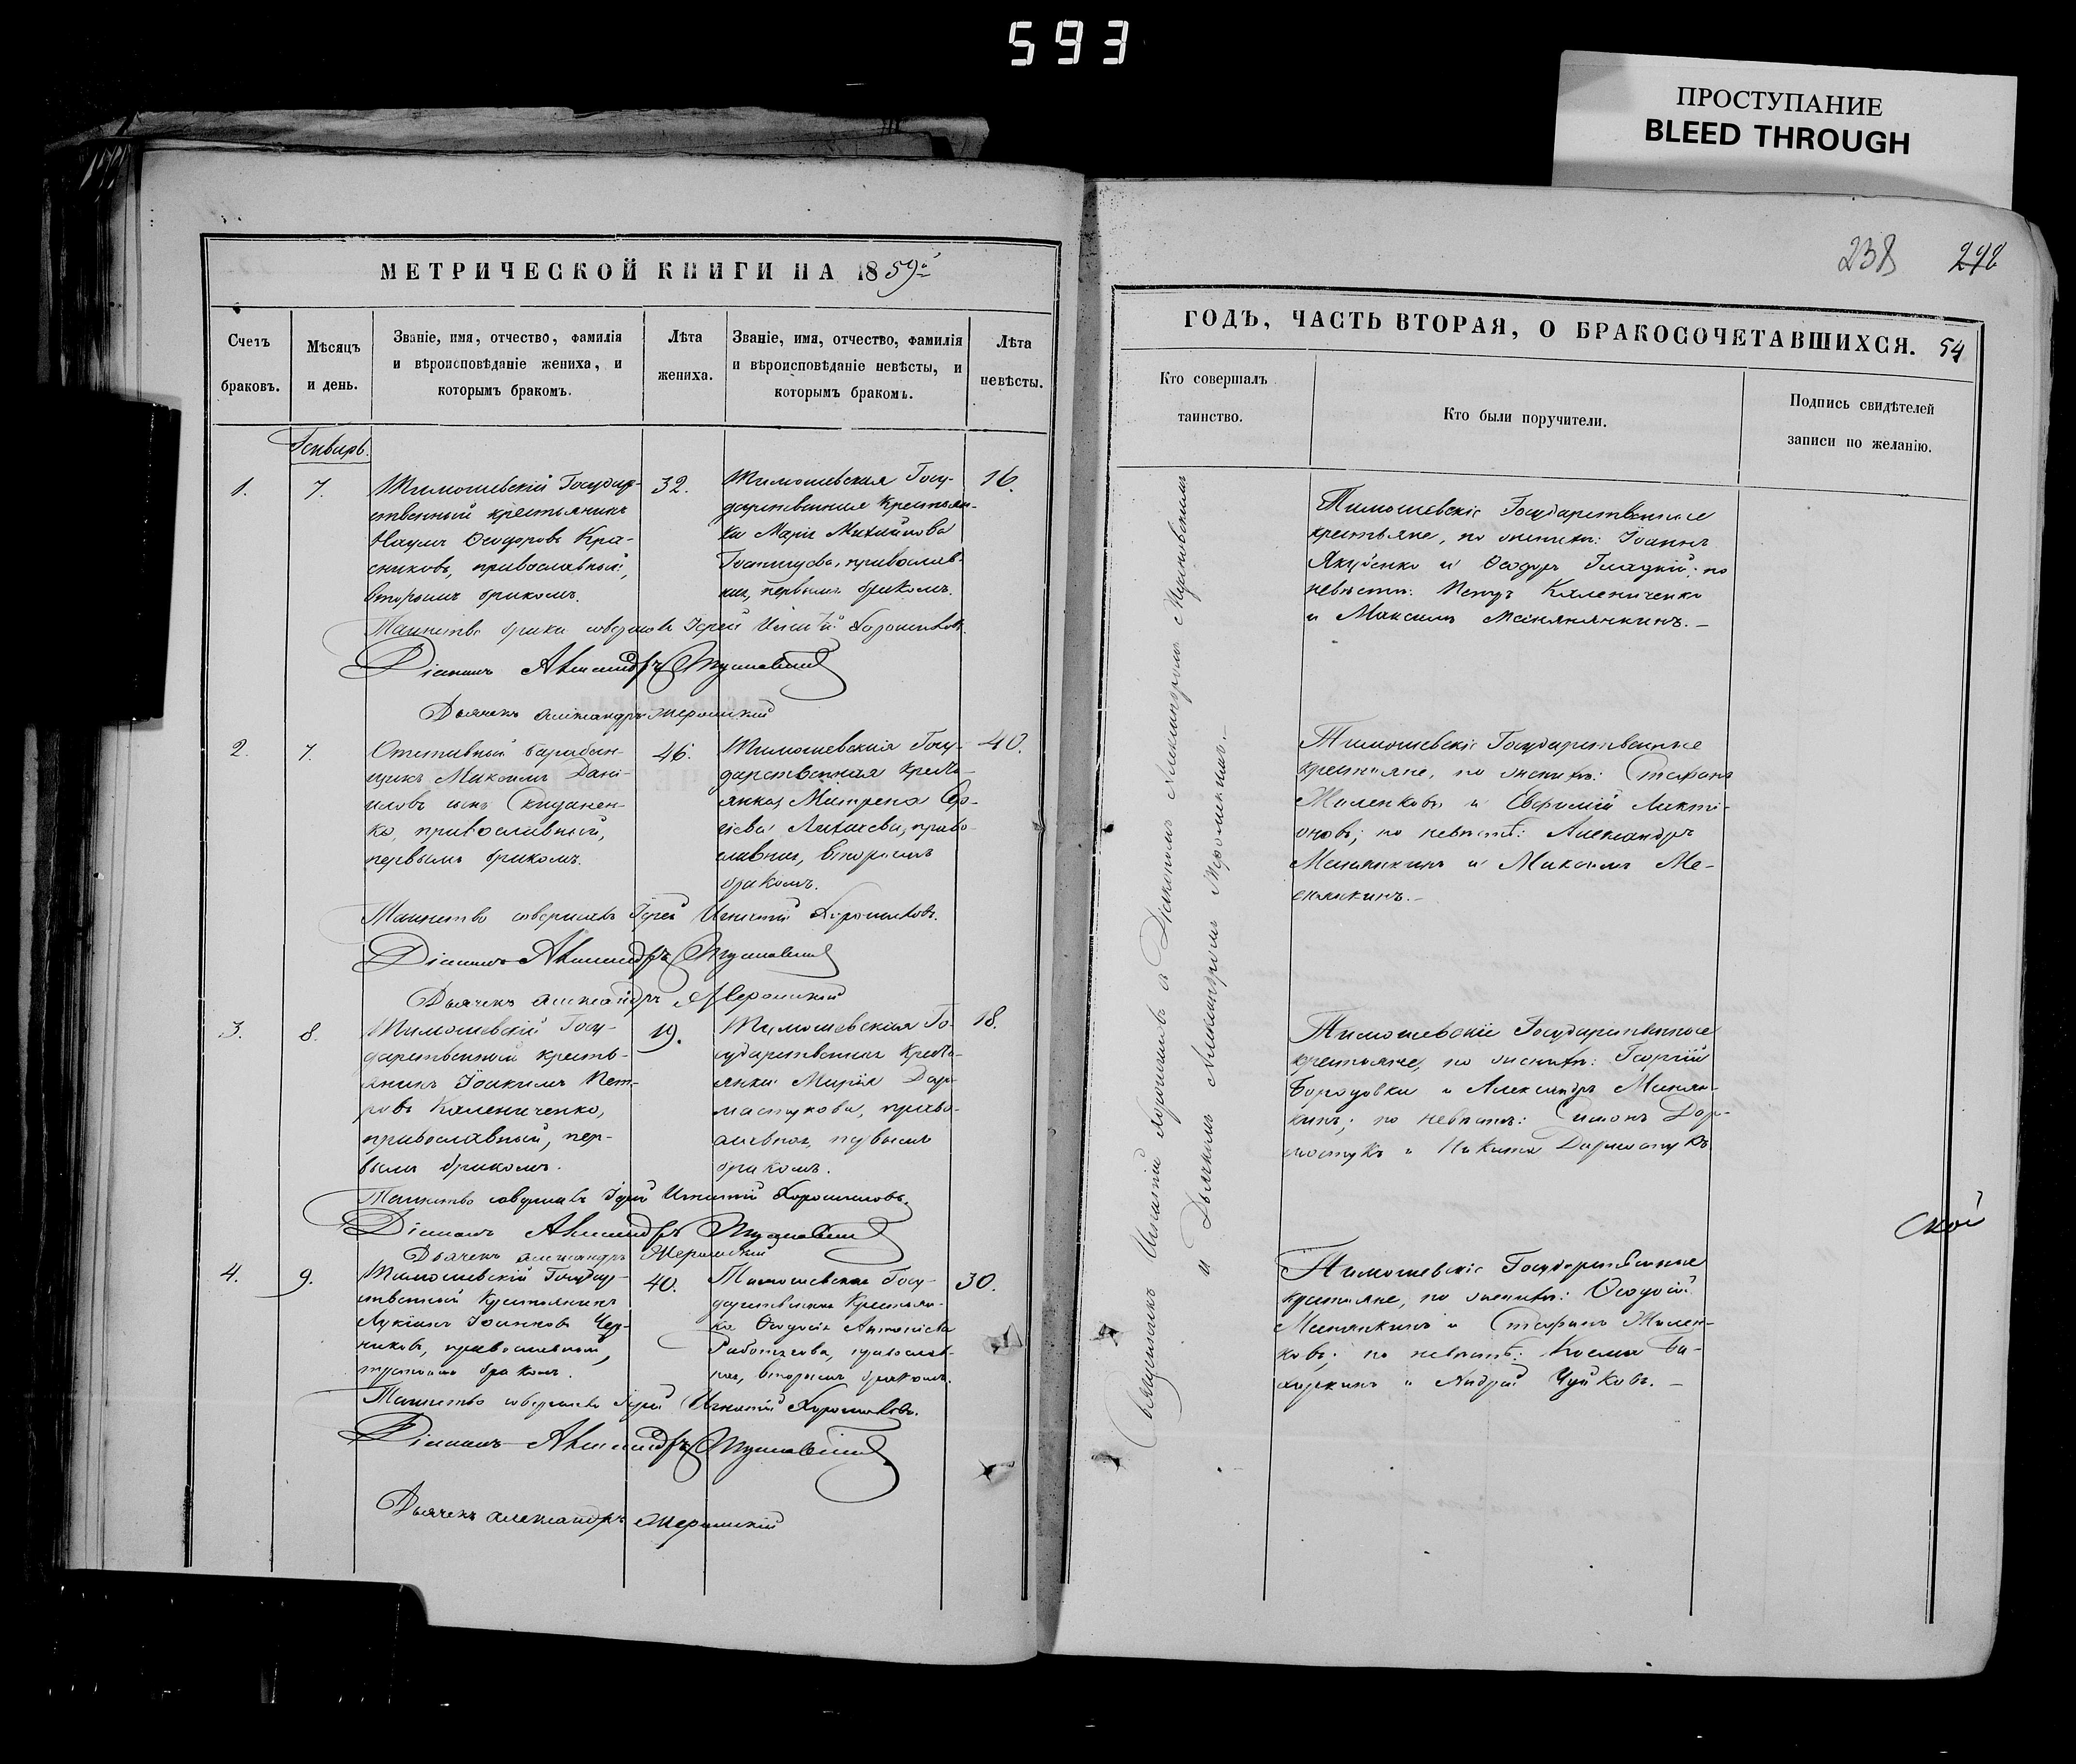 593
ПРОСТУПАНИЕ
BLEED THROUGH
238 242
МЕТРИЧЕСКОЙ КНИГИ НА 1859й
Счетъ браковъ.
Мѣсяцъ и день.
Званіе, имя, отчество, фамилія
и вѣроисповѣданіе жениха, и
которымъ бракомъ.
Лѣта жениха.
Званіе, имя, отчество, фамилія
и вѣроисповѣданіе невѣсты, и
которымъ бракомъ.
Лѣта невѣсты.
Генварь.
1. 7.
Тимошевскій Государ-
ственный крестьянинъ
Наумъ Ѳеодоровъ Кра-
сниковъ, православный,
вторымъ бракомъ.
32.
Тимошевская Госу-
дарственная крестьян-
ка Марія Михайлова
православ-
ная, первымъ бракомъ.
16.
Таинство брака совершалъ Іерей Игнатій Хорошиловъ.
Діаконъ Александръ
Дьячекъ Александръ
2. 7.
Отставный барабан-
щикъ Максимъ Дані-
иловъ сынъ
православный,
первымъ бракомъ.
46.
Тимошевская Госу-
дарственная кресть-
янка Матрена Сер-
гіева Лихачева, право-
славная, вторымъ
бракомъ.
40.
Таинство совершалъ Іерей Игнатій Хорошиловъ.
Діаконъ Александръ
Дьячекъ Александръ
3. 8.
Тимошевскій Госу-
дарственный кресть-
янинъ Іоакимъ Пет-
ровъ Калениченко,
православный, пер-
вымъ бракомъ.
19.
Тимошевская Го-
сударственная кресть-
янка Марія Дар-
мастукова, право-
славная, первымъ
бракомъ.
18.
Таинство совершалъ Іерей Игнатій Хорошиловъ.
Діаконъ Александръ
Дьячекъ Александръ
4. 9.
Тимошевскій Государ-
ственный Крестьянинъ
Лукіанъ Іоанновъ Чер-
никовъ, православный,
третьимъ бракомъ.
40.
Тимошевская Госу-
дарственная Крестьян-
ка Ѳеодосія Антоніева
православ-
ная, вторымъ бракомъ.
30.
Таинство совершалъ Іерей Игнатій Хорошиловъ.
Діаконъ Александръ
Дьячекъ Александръ
ГОДЪ, ЧАСТЬ ВТОРАЯ, О БРАКОСОЧЕТАВШИХСЯ. 54
Кто совершалъ
таинство.
Кто были поручители.
Подпись свидѣтелей
записи по желанію.
Священникъ Игнатій Хорошиловъ съ Діакономъ Александромъ
и Дьячкомъ Александромъ
Тимошевскіе Государственные
крестьяне, по женихѣ: Іоаннъ
Якубенко и Ѳеодоръ Гладкій; по
невѣстѣ: Петръ Калениченко
и Максимъ
Тимошевскіе Государственные
крестьяне, по женихѣ: Стефанъ
Жиленковъ и Евфимій Лакті-
оновъ; по невѣстѣ: Александръ
Менякинъ и Максимъ Ме-
някинъ.
Тимошевскіе Государственные
крестьяне, по женихѣ: Георгій
Бородавка и Александръ Меня-
кинъ; по невѣстѣ: Симонъ Дар-
мостукъ и Никита Дармостукъ
ской
Тимошевскіе Государственные
крестьяне, по женихѣ:
Менякинъ и Стефанъ Жилен-
ковъ; по невѣстѣ: Косма Ба-
и Андрей Чуйковъ.